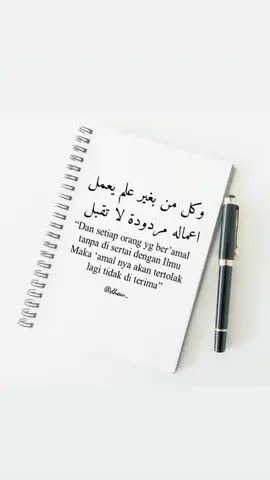 وكل من بغير علم يعمل
اعماله مردودة لا تقبل
“Dan setiap orang yg ber’amal
tanpa di sertai dengan Ilmu
Maka ‘amal nya akan tertolak
lagi tidak di terima”